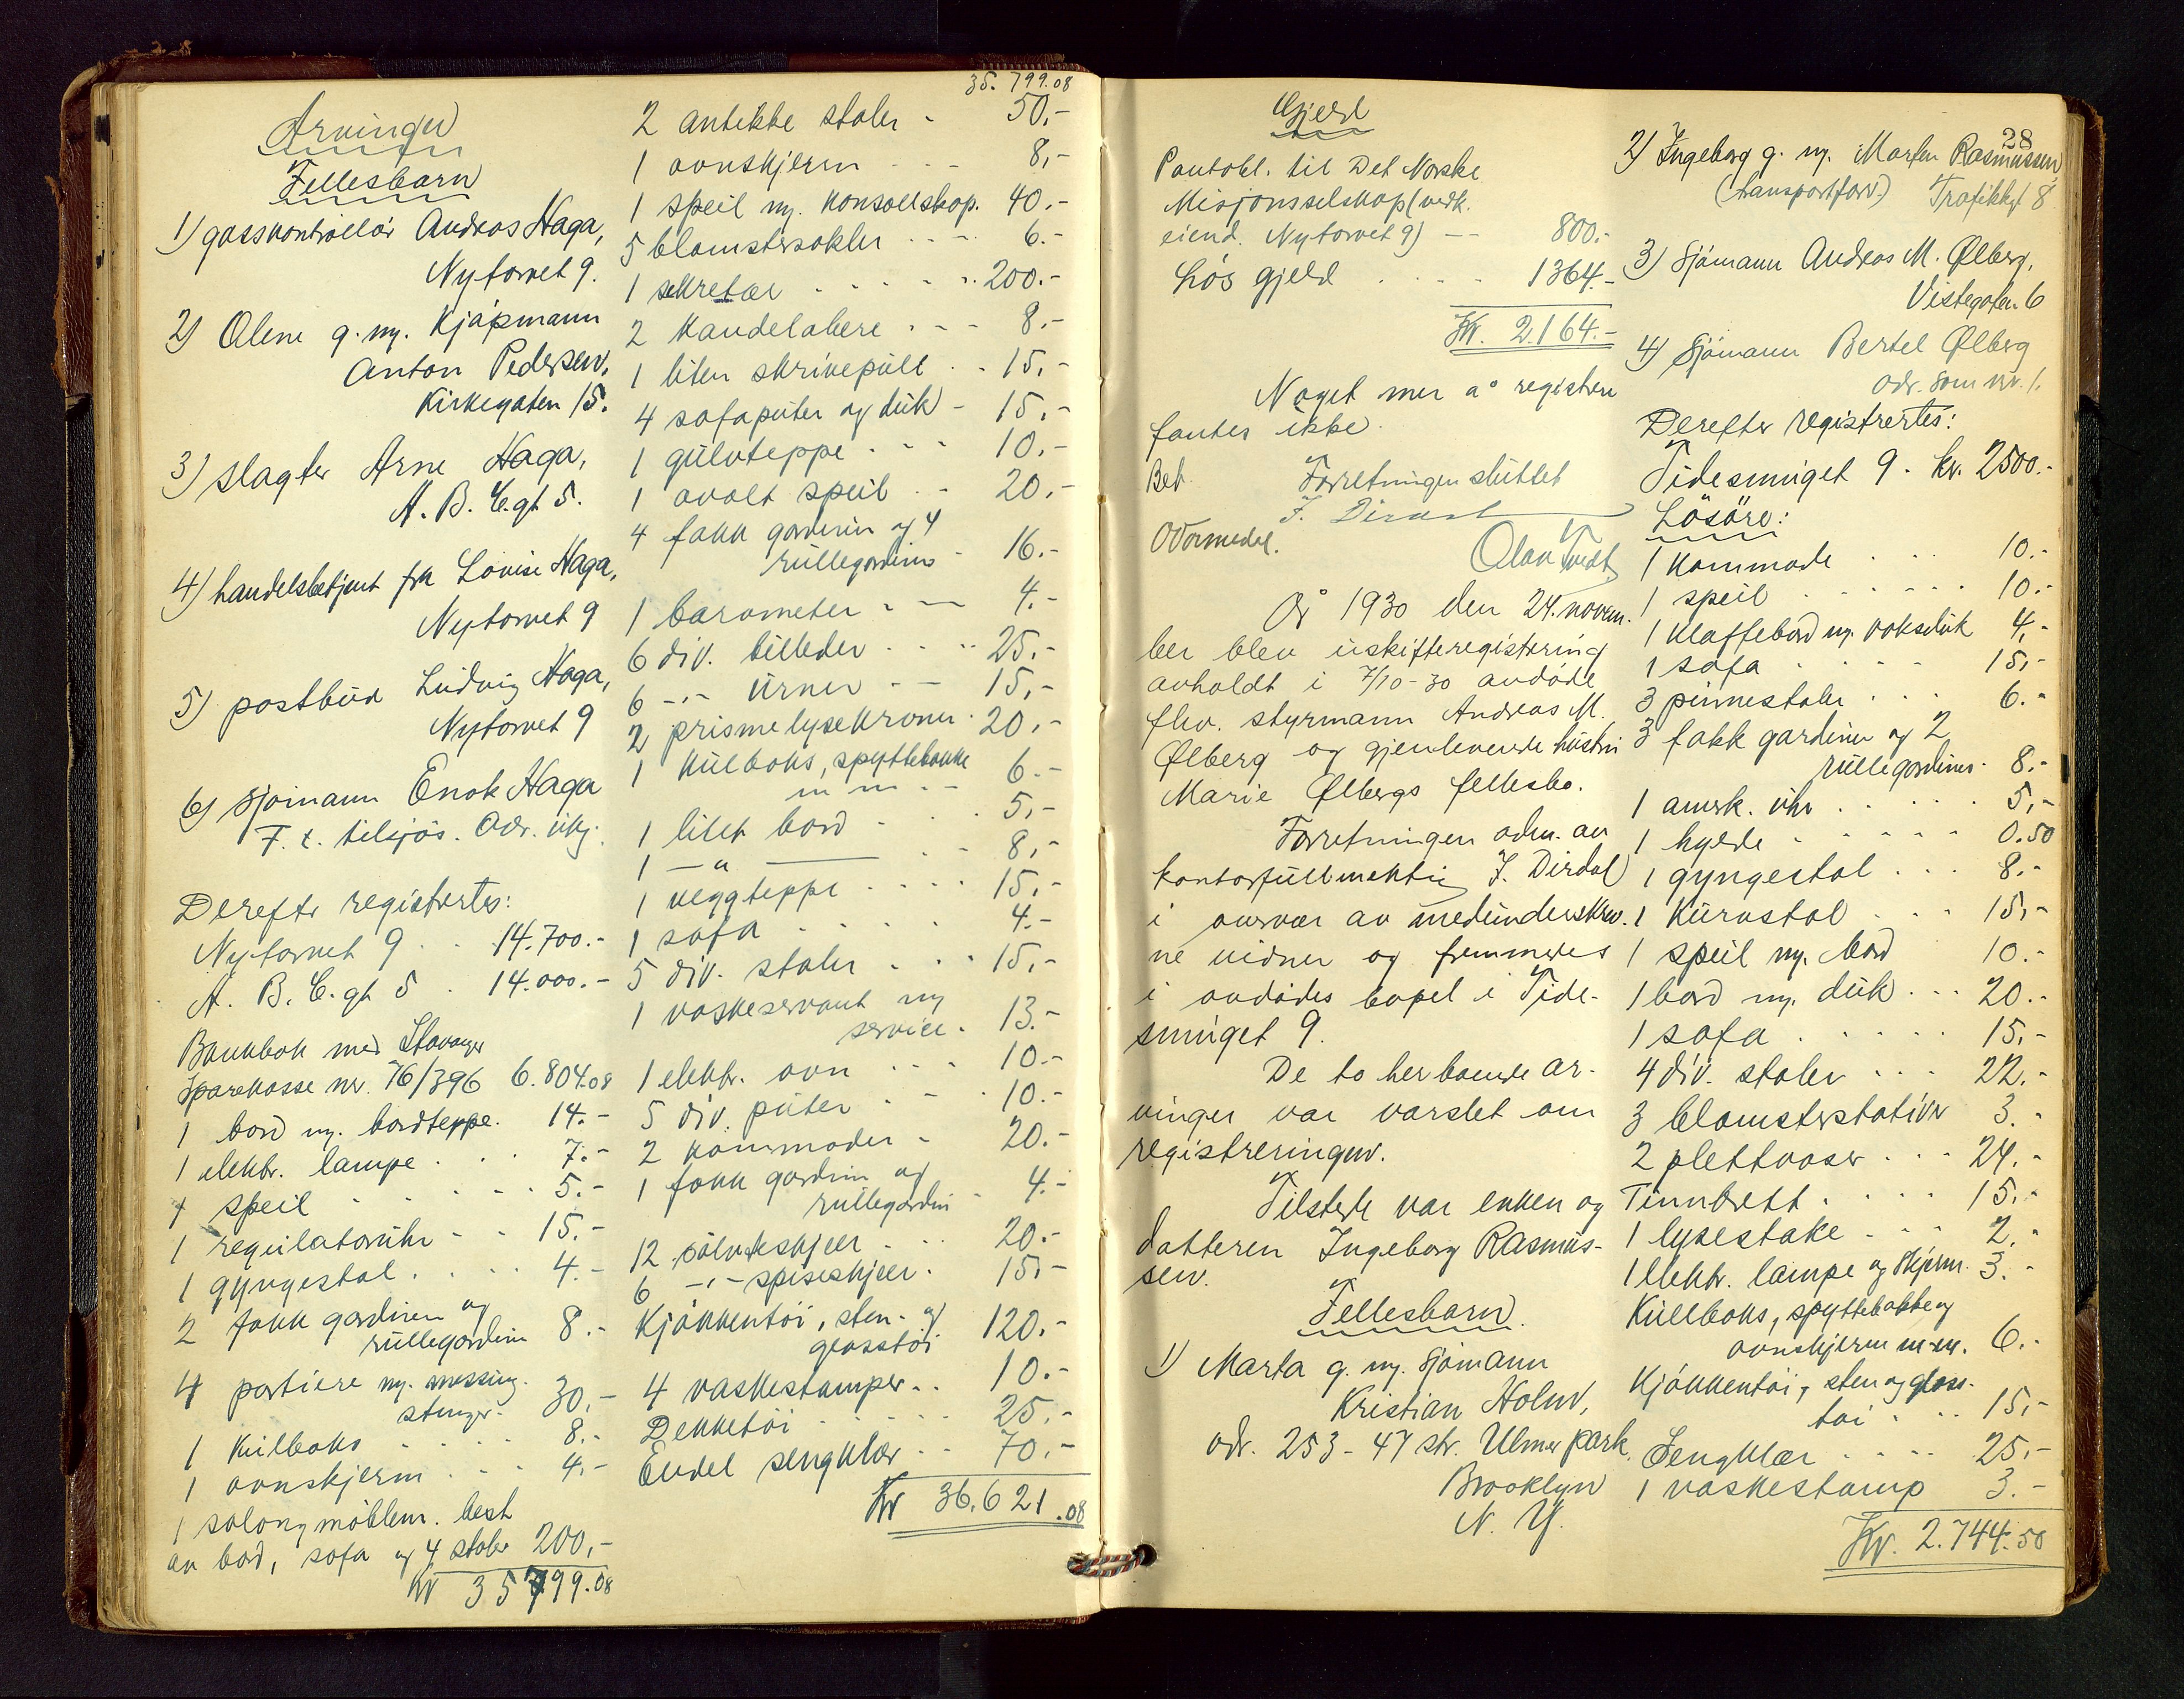 Arvinger
Fellesbarn
1) gasskontrollör Andreas Haga,
Nytorvet 9.
2) Olene g. m. kjøpmann
Anton Pedersen,
Kirkegaten 15.
3) slagter Arne Haga,
A. B. C. gt 5.
4) handelsbetjent frk Lovise Haga,
Nytorvet 9
5) postbud Ludvig Haga,
Nytorvet 9
6) sjømann Enok Haga
F. t. tilsjös. Adr. ukj.
Derefter registrertes:
Nytorvet 9 . . 14.700.-
A. B. C. gt 5 . 14.000.-
Bankbok med Stavanger
Sparekasse nr. 76/396 6.804.08
1 bord m. bordteppe. 14.-
1 elektr. lampe . . . 7.-
1 speil . . . . . 5.-
1 regulatoruhr . . 15.-
1 gyngestol . . . . 4.-
2 fakk gardiner og
rullegardiner 8.-
4 portiere m. messing-
stenger. 30.-
1 kulboks . . . . . 8.-
1 ovnskjerm . . . 4.-
1 salongmöblem. best
av bord, sofa og 4 stoler 200,-
Kr 35799.08
35.799.08
2 antikke stoler - 50,-
1 ovnskjerm - - - 8,-
1 speil m. konsollskap. 40.-
5 blomstersokler . . - . 6.-
1 sekretær . . . . . . 200.-
2 kandelabere . - - 8.-
1 liten skrivepult . . 15.-
4 sofaputer og duk - 15.-
1 gulvteppe . - - 10.-
1 ovalt speil . . 20.-
4 fakk gardiner og 4
rullegardiner - 16.-
1 barometer . - 4.-
6 div. billeder . . . 25.-
6 -"- urner - - 15,-
2 prismelysekroner . 20.-
1 kulboks, spyttebakke
m m . - 6.-
1 litet bord - . . 5,-
1 -"- . - 8,-
1 veggteppe . . . . 15.-
1 sofa . . . . . 4.-
5 div. stoler . . . 15,-
1 vaskeservant m
service. 13.-
1 elektr. ovn . . . 10.-
5 div. puter . - . 10.-
2 kommoder - 20.-
1 fakk gardin og
rullegardin - 4.-
12 sölvteskjeer . . . 20.-
6 -"- spiseskjeer. 15.-
Kjøkkentöi, sten- og
glasstöi 120.-
4 vaskestamper.. 10.-
Dekketöi . . . . . 25.-
Endel sengklær . . 70.-
Kr 36.621.08
Gjeld
Pantobl. til Det Norske
Misjonsselskap (vedk.
eiend. Nytorvet 9) -- 800.-
Lös gjeld . . . 1364.-
Kr. 2.164.-
Noget mer å registere
fantes ikke.
Bet. Forretningen sluttet
J. Dirdal
Olav Tvedt
År 1930 den 24. novem-
ber blev uskifteregistrering
avholdt i 7/10-30 avdöde
fhv. styrmann Andreas M.
Ølberg og gjenlevende hustru
Marie Ølbergs fellesbo.
Forretningen adm. av
kontorfullmektig J. Dirdal
i overvær av medunderskrev-
ne vidner og fremmedes
i avdödes bopel i Tide-
smuget 9.
De to herboende ar-
vinger var varslet om
registreringen.
Tilstede var enken og
datteren Ingeborg Rasmus-
sen.
Fellesbarn.
1) Marta g. m. sjømann
Kristian Holm,
adr. 253 - 47 str. Ulmer park
Brooklyn
N. Y.
28
2) Ingeborg g. m. Marten Rasmussen
(transportforr.) Trafikkgt 8
3) Sjømann Andreas M. Ølberg,
Vistegaten 6
4) Sjømann Bertel Ølberg
adr. som nr. 1.
Derefter registrertes:
Tidesmuget 9 . kr. 2500.-
Lösöre:
1 kommode . . . 10.-
1 speil . . . . . . 10.-
1 klaffebord m. voksduk 4,-
1 sofa . . . . 15,-
3 pinnestoler . . . 6.-
3 fakk gardiner og 2
rullegardiner. 8.-
1 amerk. uhr . . . . . 5,-
1 hylde . . . . . 0.50
1 gyngestol . . . 8.-
1 kurvstol . . . 15,-
1 speil m. bord 10.-
1 bord m. duk . . . 20.-
1 sofa . . . . . 15,-
4 div. stoler . . . 22.-
3 blomsterstativer 3.-
2 plettvaser . . . 24.-
Tinnbrett . . . . 15.-
1 lysestake . . . 2.-
1 elektr. lampe og skjerm. 3.-
Kullboks, spyttebakke og
ovnskjerm m.m. 6.-
Kjøkkentöi, sten og glass-
töi . . . 15,-
Sengklær . . . . 25,-
1 vaskestamp 3.-
Kr. 2.744.50